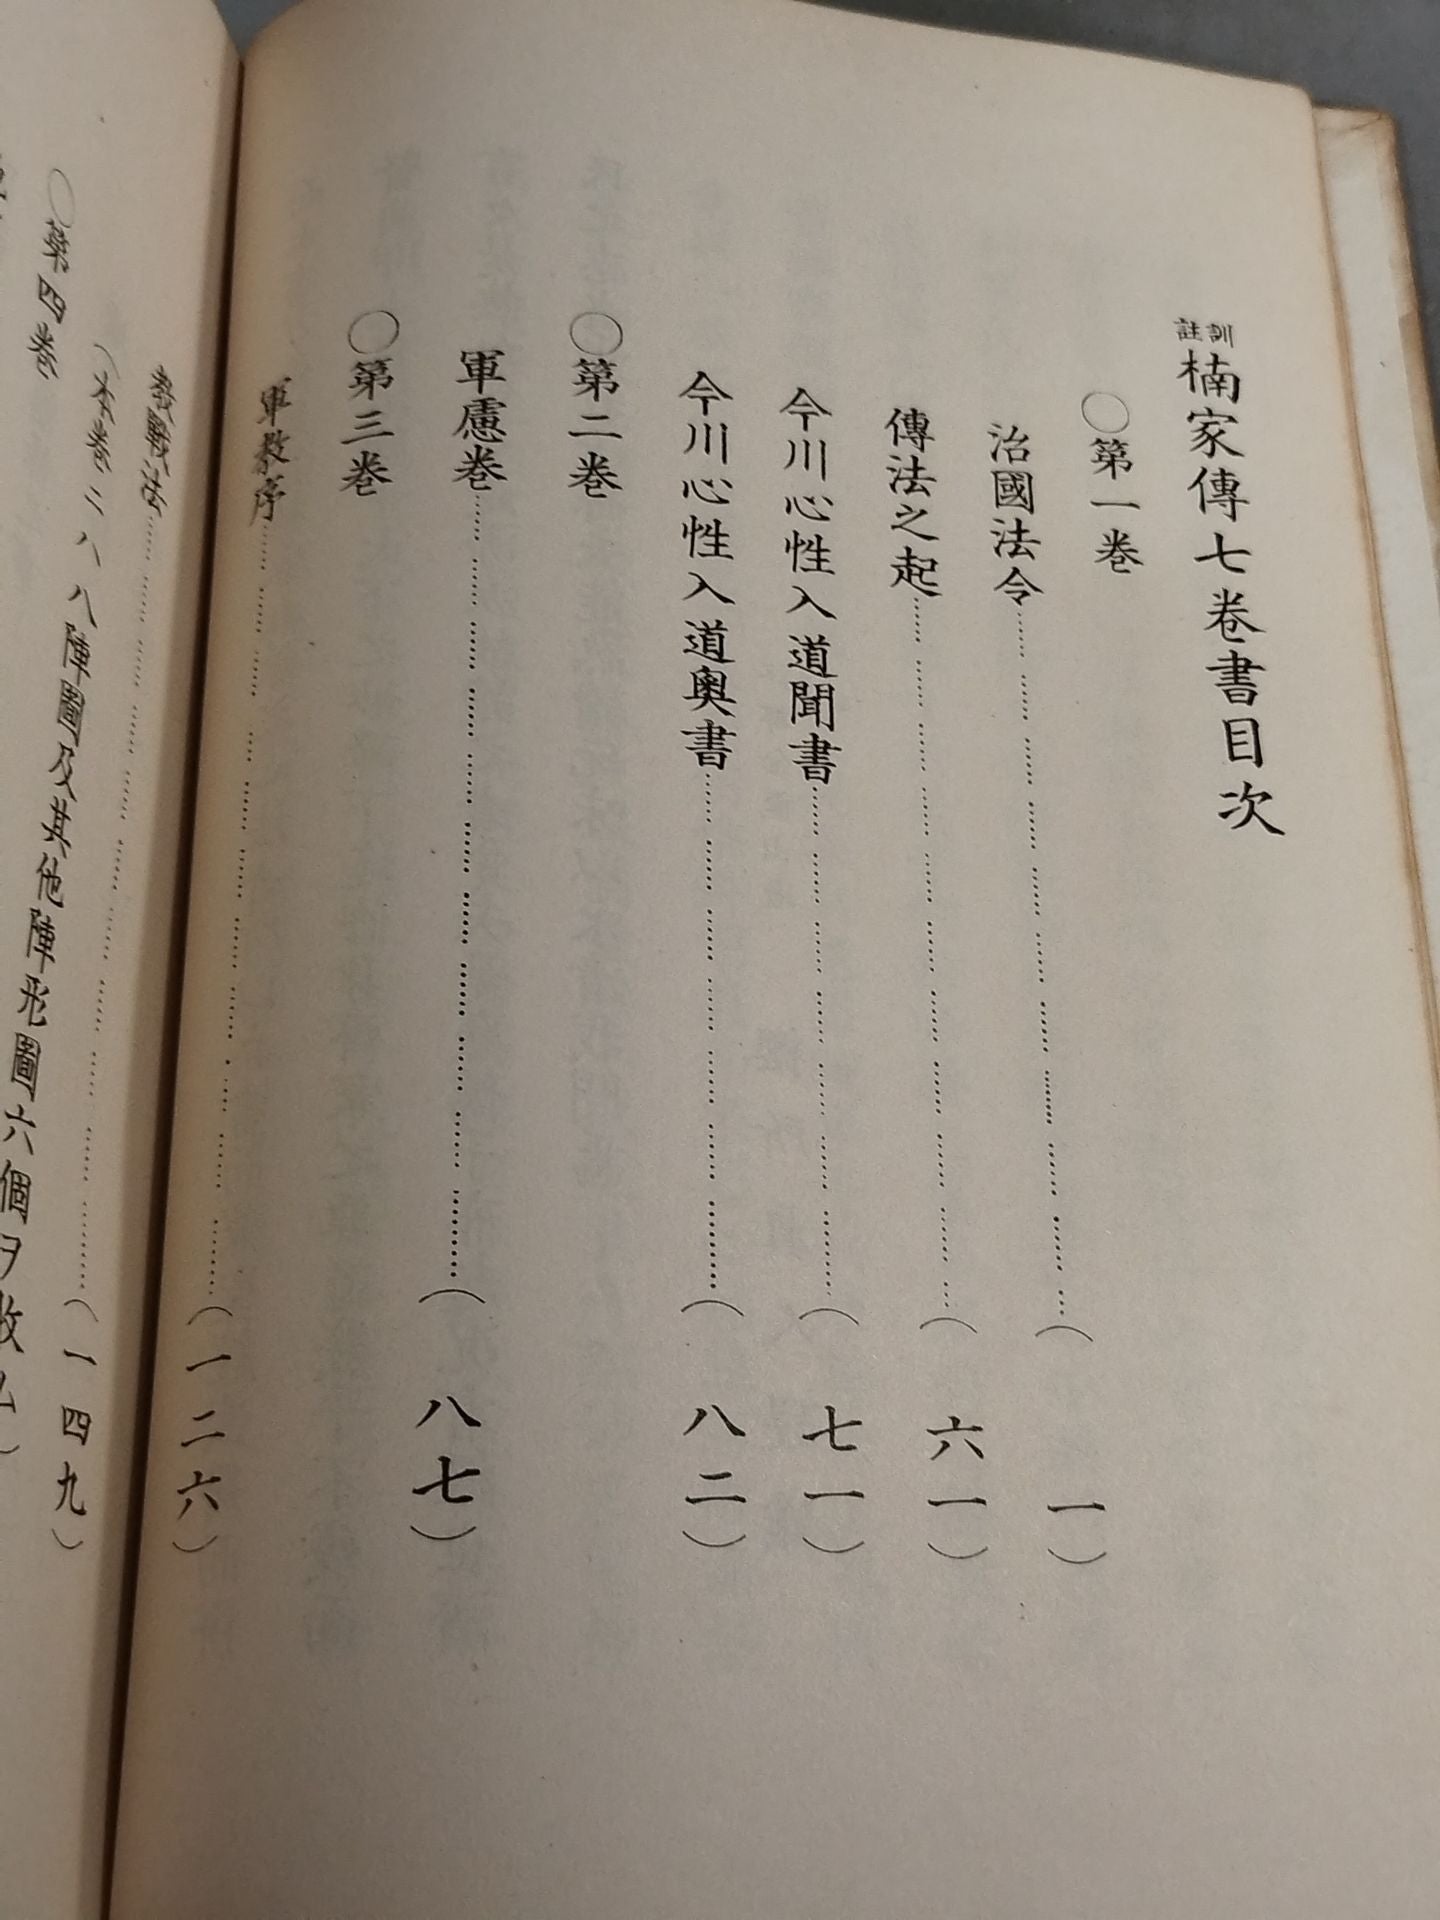 訓註 楠家傳七卷書目次
○第一巻
治國法令……………………………（一）
傳法之起……………………………（六一）
今川心性入道聞書……………………………（七一）
今川心性入道奥書……………………………（八二）
○第二巻
軍慮巻……………………………（八七）
○第三巻
軍教序……………………………（一二六）
教戰法……………………………（一四九）
（本巻ニハ八陣圖及其他陣形圖六個ヲ收ム）
○第四巻